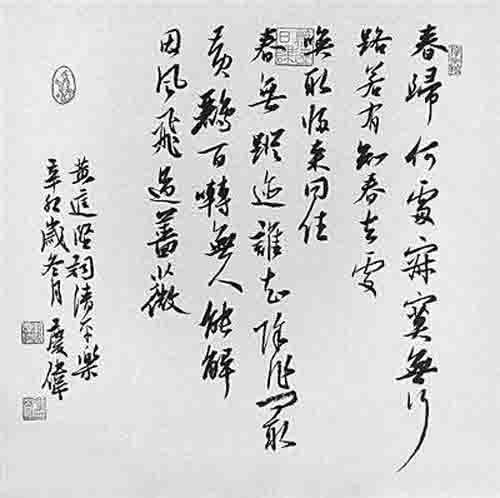 春歸何處寂寞無行
路若有知春去處
喚取歸來同住
春無蹤迹誰知除非問取
黃鸝百囀無人能解
因風飛過薔薇
黃庭堅詞清平樂
辛卯歲冬月慶偉